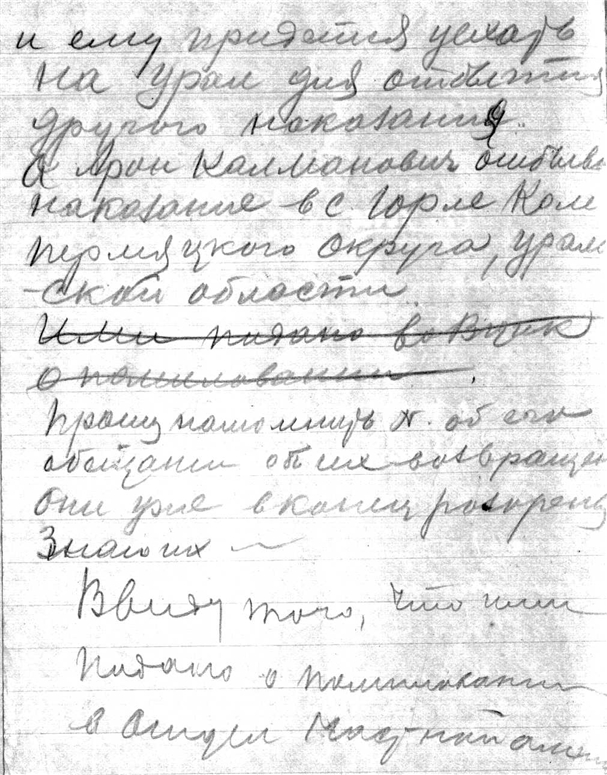 и ему придется уехать
на Урал для отбытия
другого наказания.
А Арон Калманович отбыва
наказание в с. Горле Коми
пермяцкого округа, Ураль
-ской области.
Ими подано во ВЦИК
о помиловании
Прошу напомнить т. об его
обещании об их возвращен
Они уже в конец разорены
Знаю их —
Ввиду того, что ими
подано о помиловании
в Отдел частной амни